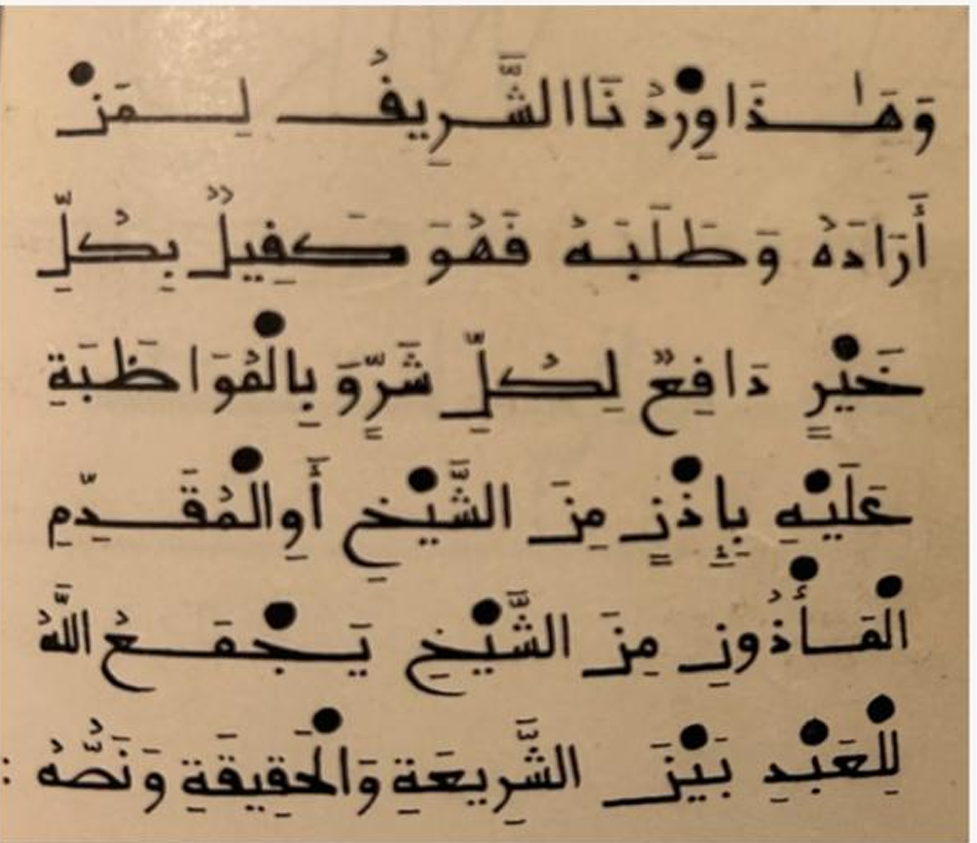 وَهَٰذَا وِرْدُنَا الشَّرِيفُ لِمَنْ
أَرَادَهُ وَطَلَبَهُ فَهُوَ كَفِيلٌ بِكُلِّ
خَيْرٍ دَافِعٌ لِكُلِّ شَرٍّ وَبِالْمُوَاظَبَةِ
عَلَيْهِ بِإِذْنٍ مِنَ الشَّيْخِ أَوِ الْمُقَدَّمِ
الْمَأْذُونِ مِنَ الشَّيْخِ يَجْمَعُ اللَّهُ
لِلْعَبْدِ بَيْنَ الشَّرِيعَةِ وَالْحَقِيقَةِ وَنَصُّهُ :